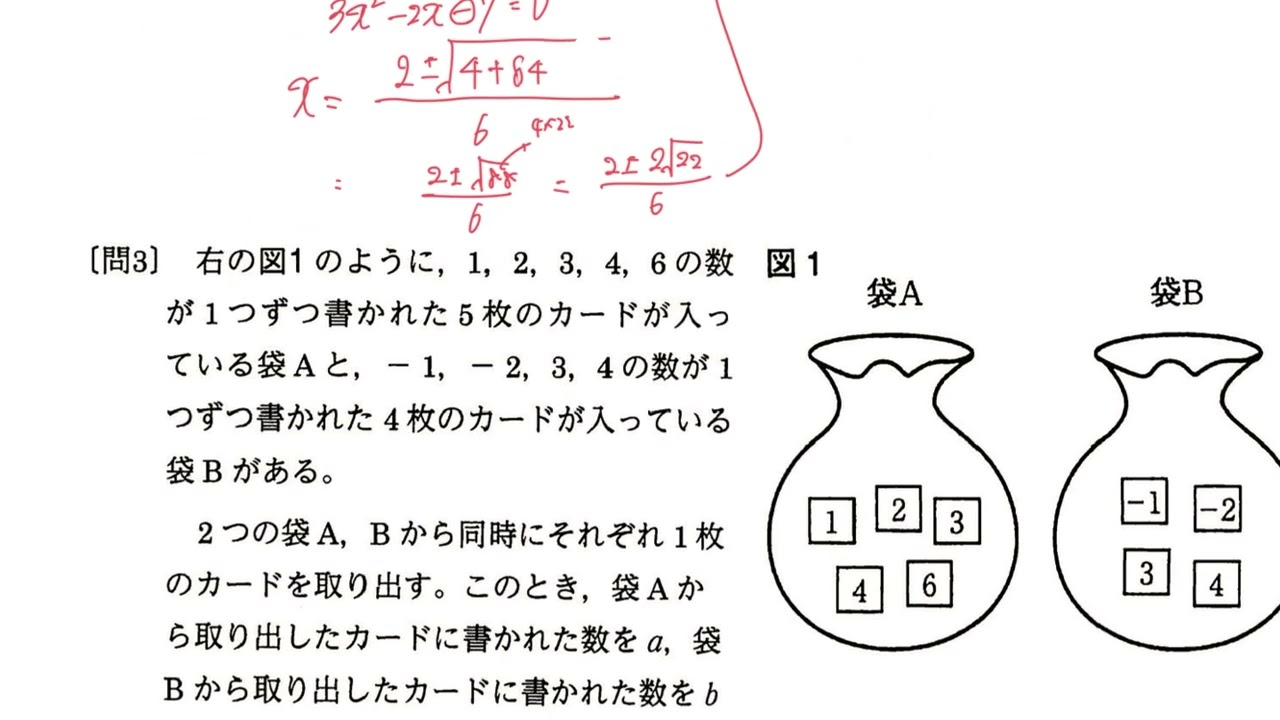 3x² - 2x - 7 = 0
x = (2 ± √(4+84)) / 6
4×22
= (2 ± √88) / 6 = (2 ± 2√22) / 6
〔問3〕 右の図1のように，1，2，3，4，6の数
が1つずつ書かれた5枚のカードが入っ
ている袋Aと，－1，－2，3，4の数が1
つずつ書かれた4枚のカードが入っている
袋Bがある。
2つの袋A，Bから同時にそれぞれ1枚
のカードを取り出す。このとき，袋Aか
ら取り出したカードに書かれた数をa，袋
Bから取り出したカードに書かれた数をb
図1
袋A
1 2 3
4 6
袋B
-1 -2
3 4